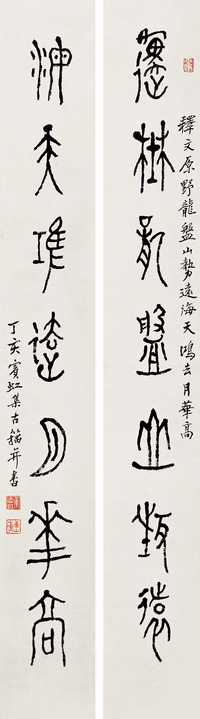 原野龍盤山勢遠
釋文原野龍盤山勢遠海天鴻去月華高
海天鴻去月華高
丁亥賓虹集古籀并書